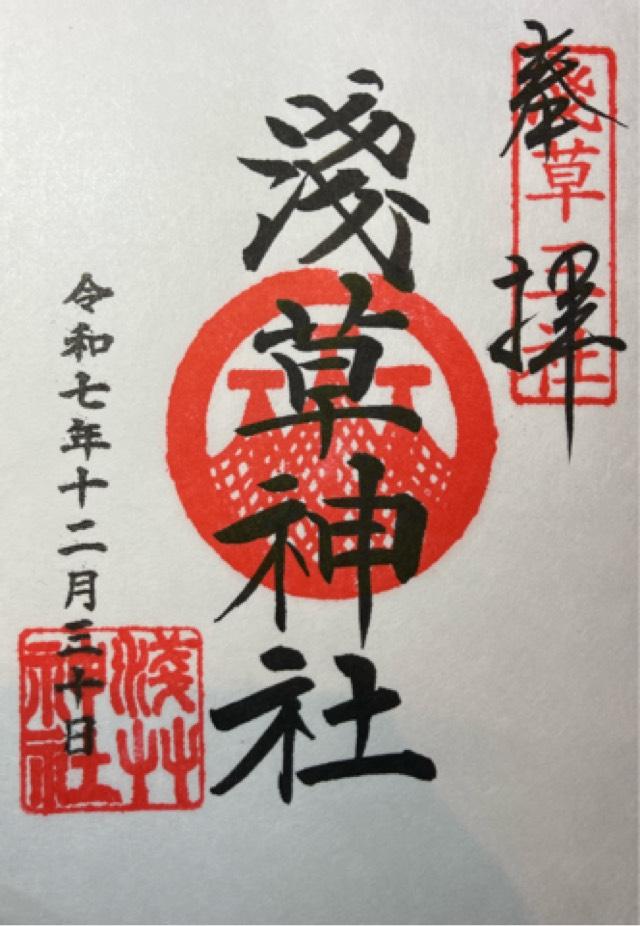 奉拝
淺草神社
令和七年十二月三十日
淺草神社